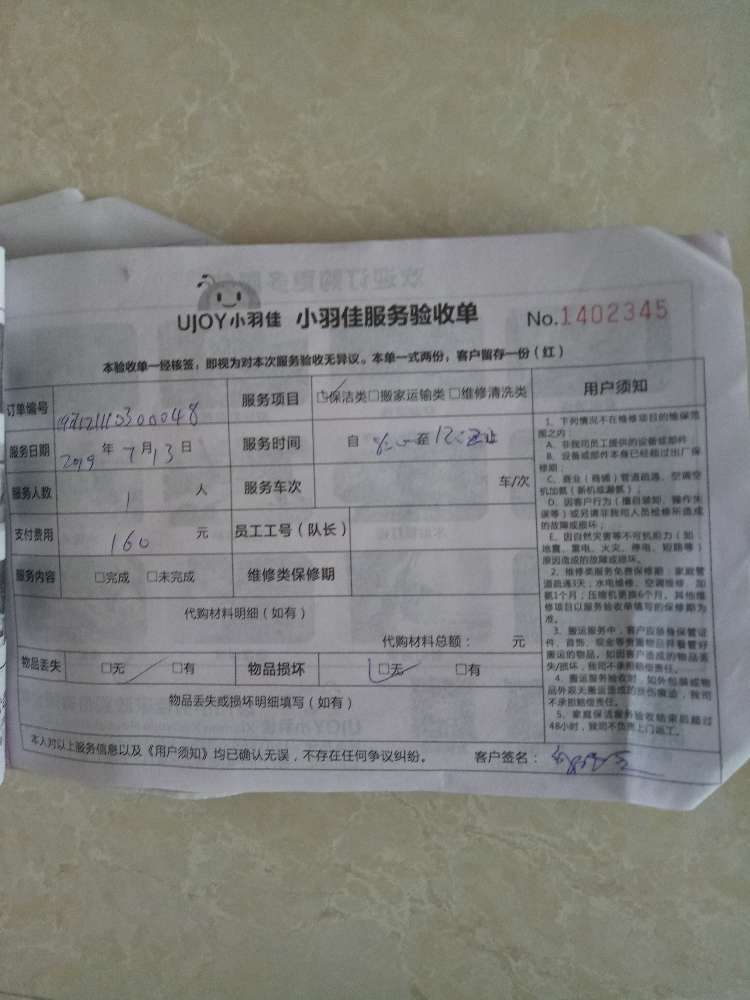 UJOY小羽佳 小羽佳服务验收单 No.1402345
本验收单一经核签，即视为对本次服务验收无异议。本单一式两份，客户留存一份（红）
订单编号 服务项目 □保洁类□搬家运输类□维修清洗类
服务日期 2019 年 7 月 13 日 服务时间 自 至
服务人数 1 人 服务车次 车/次
支付费用 160 元 员工工号（队长）
服务内容 □完成 □未完成 维修类保修期
代购材料明细（如有）
代购材料总额： 元
物品丢失 □无 □有 物品损坏 □无 □有
物品丢失或损坏明细填写（如有）
本人对以上服务信息以及《用户须知》均已确认无误，不存在任何争议纠纷。 客户签名：
用户须知
1、下列情况不在维修项目的维保范
围之内：
A、非我司员工提供的设备或部件
B、设备或部件本身已经超过出厂保
修期；
C、商业（商铺）管道疏通、空调空
机加氨（新机或漏氨）；
D、因客户行为（擅自装卸、操作失
误等）或另请非我司人员检修所造成
的故障或损坏；
E、因自然灾害等不可抗拒力（如：
地震、雷电、火灾、停电、短路等）
原因造成的故障或损坏。
2、维修类服务免费保修期：家庭管
道疏通3天；水电维修、空调维修、加
氨1个月；压缩机更换6个月。其他维
修项目以服务验收单填写的保修期为
准。
3、搬运服务中，客户应亲身保管证
件、首饰、现金等贵重物品并看管好
搬运的物品。如因客户造成的物品丢
失/损坏，我司不承担赔偿责任。
4、搬运服务验收时，如外包装或物
品外观无搬运造成的损伤痕迹，我司
不承担赔偿责任。
5、家庭保洁服务验收结束后超过
48小时，我司不负责上门返工。